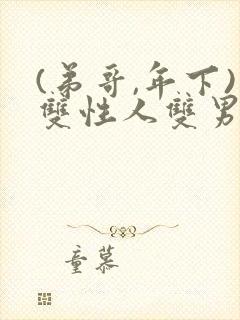 (弟哥,年下)
雙性人雙男
童慕